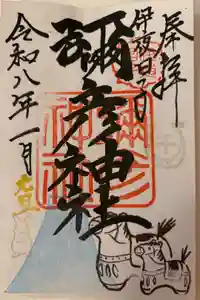 奉拝
伊夜日子
彌彦神社
令和八年一月